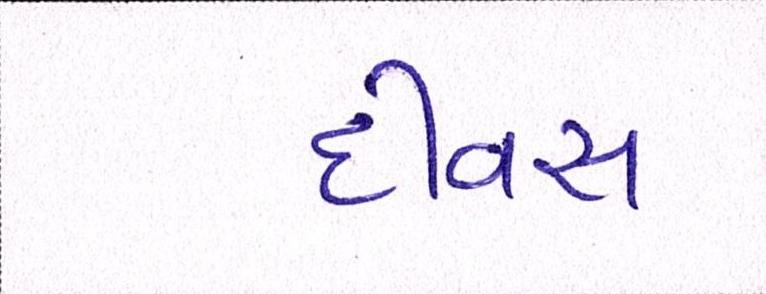 દીવસ